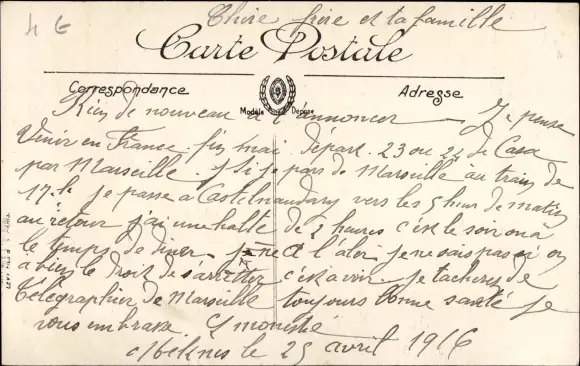 4 €
Chère frère et ta famille
Carte Postale
Correspondance
Modèle Déposé
Adresse
Rien de nouveau a t'annoncer — Je pense
Venir en France. fin mai. départ. 23 ou 24 de Casa
par Marseille. Si je pars de Marseille au train de
17.h je passe a Castelnaudary vers les 5 heur de matin
au retour j'ai une halte de 2 heures c'est le soir on a
le temps de diner. a l'aler je ne sais pas si on
a bien le droit de s'arretter c'est a voir. je tacherez de
télégraphier de Marseille toujours bonne santé je
vous embrasse.
Meknès le 25 avril 1916